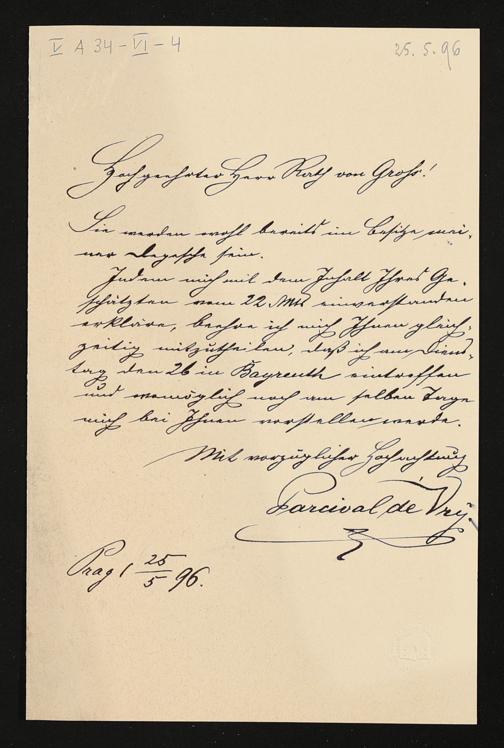 V A 34-VI-4
25.5.96
Hochgeehrter Herr Rath von Groß!
Sie werden wohl bereits im Besitze mei-
ner Depesche sein.
Indem mich mit dem Inhalt Ihres Ge-
schätzten vom 22 Mts einverstanden
erkläre, beehre ich mich Ihnen gleich-
zeitig mitzutheilen, daß ich am Diens-
tag den 26 in Bayreuth eintreffen
und womöglich noch am selben Tage
mich bei Ihnen vorstellen werde.
Mit vorzüglicher Hochachtung
Parcival de Vry
Prag 25/5 96.